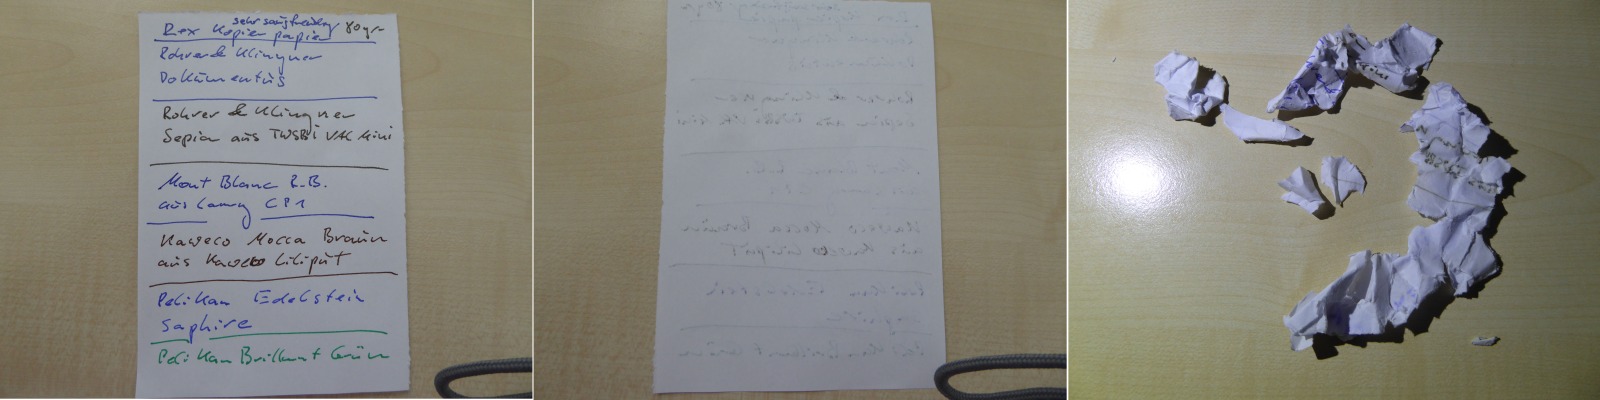 sehr saugfreudig
Rex Kopier papier 80gr
Rohrer & Klingner
Dokumentus
Rohrer & Klingner
Sepia aus TWSBI VAC Mini
Mont Blanc R.B.
aus Lamy CP1
Kaweco Mocca Braun
aus Kaweco Liliput
Pelikan Edelstein
Saphire
Pelikan Brillant Grün